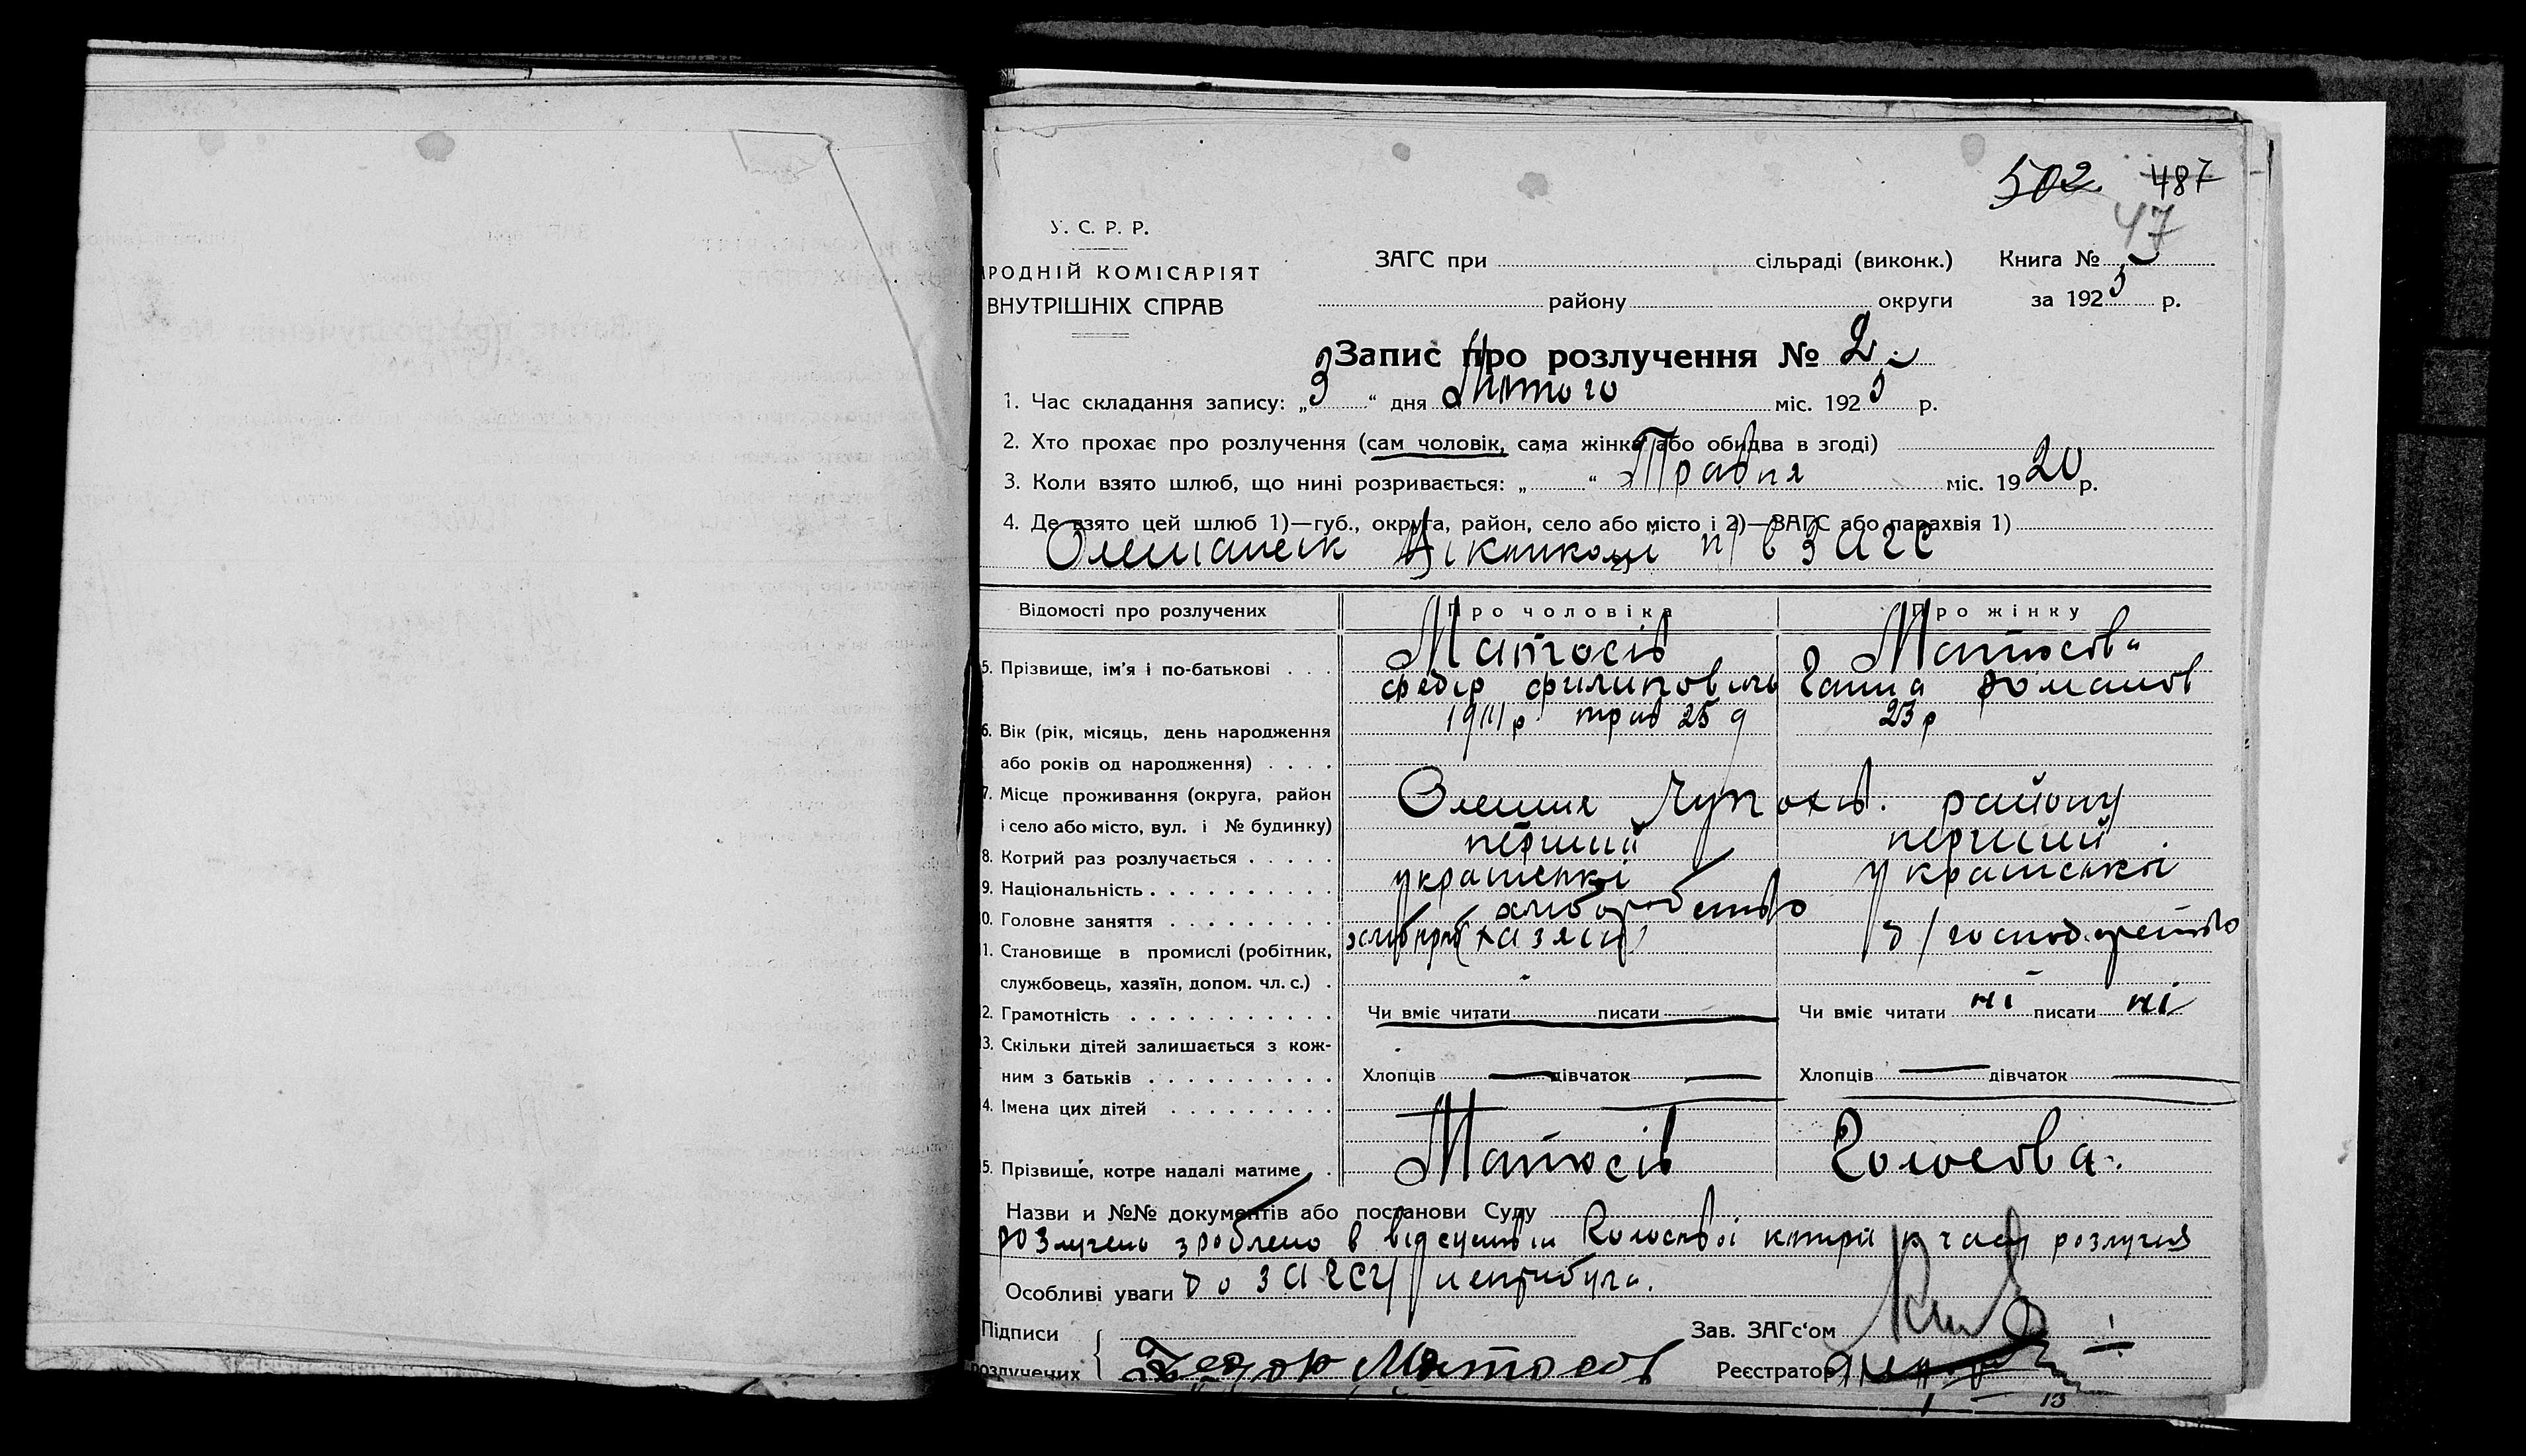 502 487
47
У. С. Р. Р.
РОДНІЙ КОМІСАРІЯТ
ВНУТРІШНІХ СПРАВ
ЗАГС при сільраді (виконк.) Книга №
району округи за 1925 р.
Запис про розлучення № 2
1. Час складання запису: „3“ дня Лютого міс. 1925 р.
2. Хто прохає про розлучення (сам чоловік, сама жінка або обидва в згоді)
3. Коли взято шлюб, що нині розривається: „ “ Травня міс. 1920 р.
4. Де взято цей шлюб 1)—губ., округа, район, село або місто і 2)—ЗАГС або парахвія 1)
в ЗАГС
Відомості про розлучених Про чоловіка Про жінку
5. Прізвище, ім'я і по-батькові . . . Матюсів Матюсова
федір филипович Ганна Романов
трав 25 д 23 р
6. Вік (рік, місяць, день народження
або років од народження) . . . .
7. Місце проживання (округа, район Олешня району
і село або місто, вул. і № будинку)
8. Котрий раз розлучається . . . . . перший перший
9. Національність . . . . . . . . . . українські українські
0. Головне заняття . . . . . . . . . хліборобство
1. Становище в промислі (робітник, хлібороб (хазяїн) д/господарство
службовець, хазяїн, допом. чл. с.) .
2. Грамотність . . . . . . . . . . . Чи вміє читати писати Чи вміє читати ні писати ні
3. Скільки дітей залишається з кож-
ним з батьків . . . . . . . . . . Хлопців — дівчаток — Хлопців — дівчаток —
4. Імена цих дітей . . . . . . . . .
5. Прізвище, котре надалі матиме . Матюсів
Назви и №№ документів або постанови Суду
зроблено в розлучия
Особливі уваги до ЗАГСу неприбула.
Підписи Зав. ЗАГс'ом
розлучених Федор Матюсов Реєстратор
13